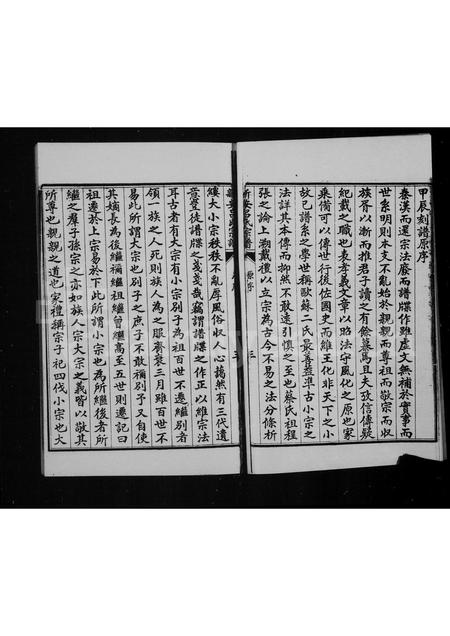 甲辰刻譜原序
秦漢而還宗法廢而譜牒作雖虛文無補於實事而
世系明則本支不亂始於親親而尊祖而敬宗而收
族胥以漸而推君子讀之有餘慕焉且夫孜信傳疑
紀載之職也表孝義文章以昭法守風化之原也家
乘備可以傳世行後佐國史而維王化非天下之小
故已譜系之學世稱歐蘇二氏最善蓋準古小宗之
法詳其本傳而抑然不敢遠引慎之至也蔡氏祖程
張之論上溯戴禮以立宗為古今不易之法分條析
縷大小宗秩秩不亂厚風俗收人心藹然有三代遺
意豈徒譜牒之戔戔哉竊謂譜牒之作正以維宗法
耳古者有大宗有小宗別子為祖百世不遷繼別者
領一族之人死則族人為之服齊衰三月雖百世不
易此所謂大宗也別子之庶子不敢禰別子又自使
其嫡長為後繼禰繼祖繼曾繼高至五世則遷記曰
祖遷於上宗易於下此所謂小宗也為所繼後者所
繼之羣子孫宗之亦如族人宗大宗之義皆以敬其
所尊也親親之道也家禮稱宗子祀四代小宗也大
原序
三
三